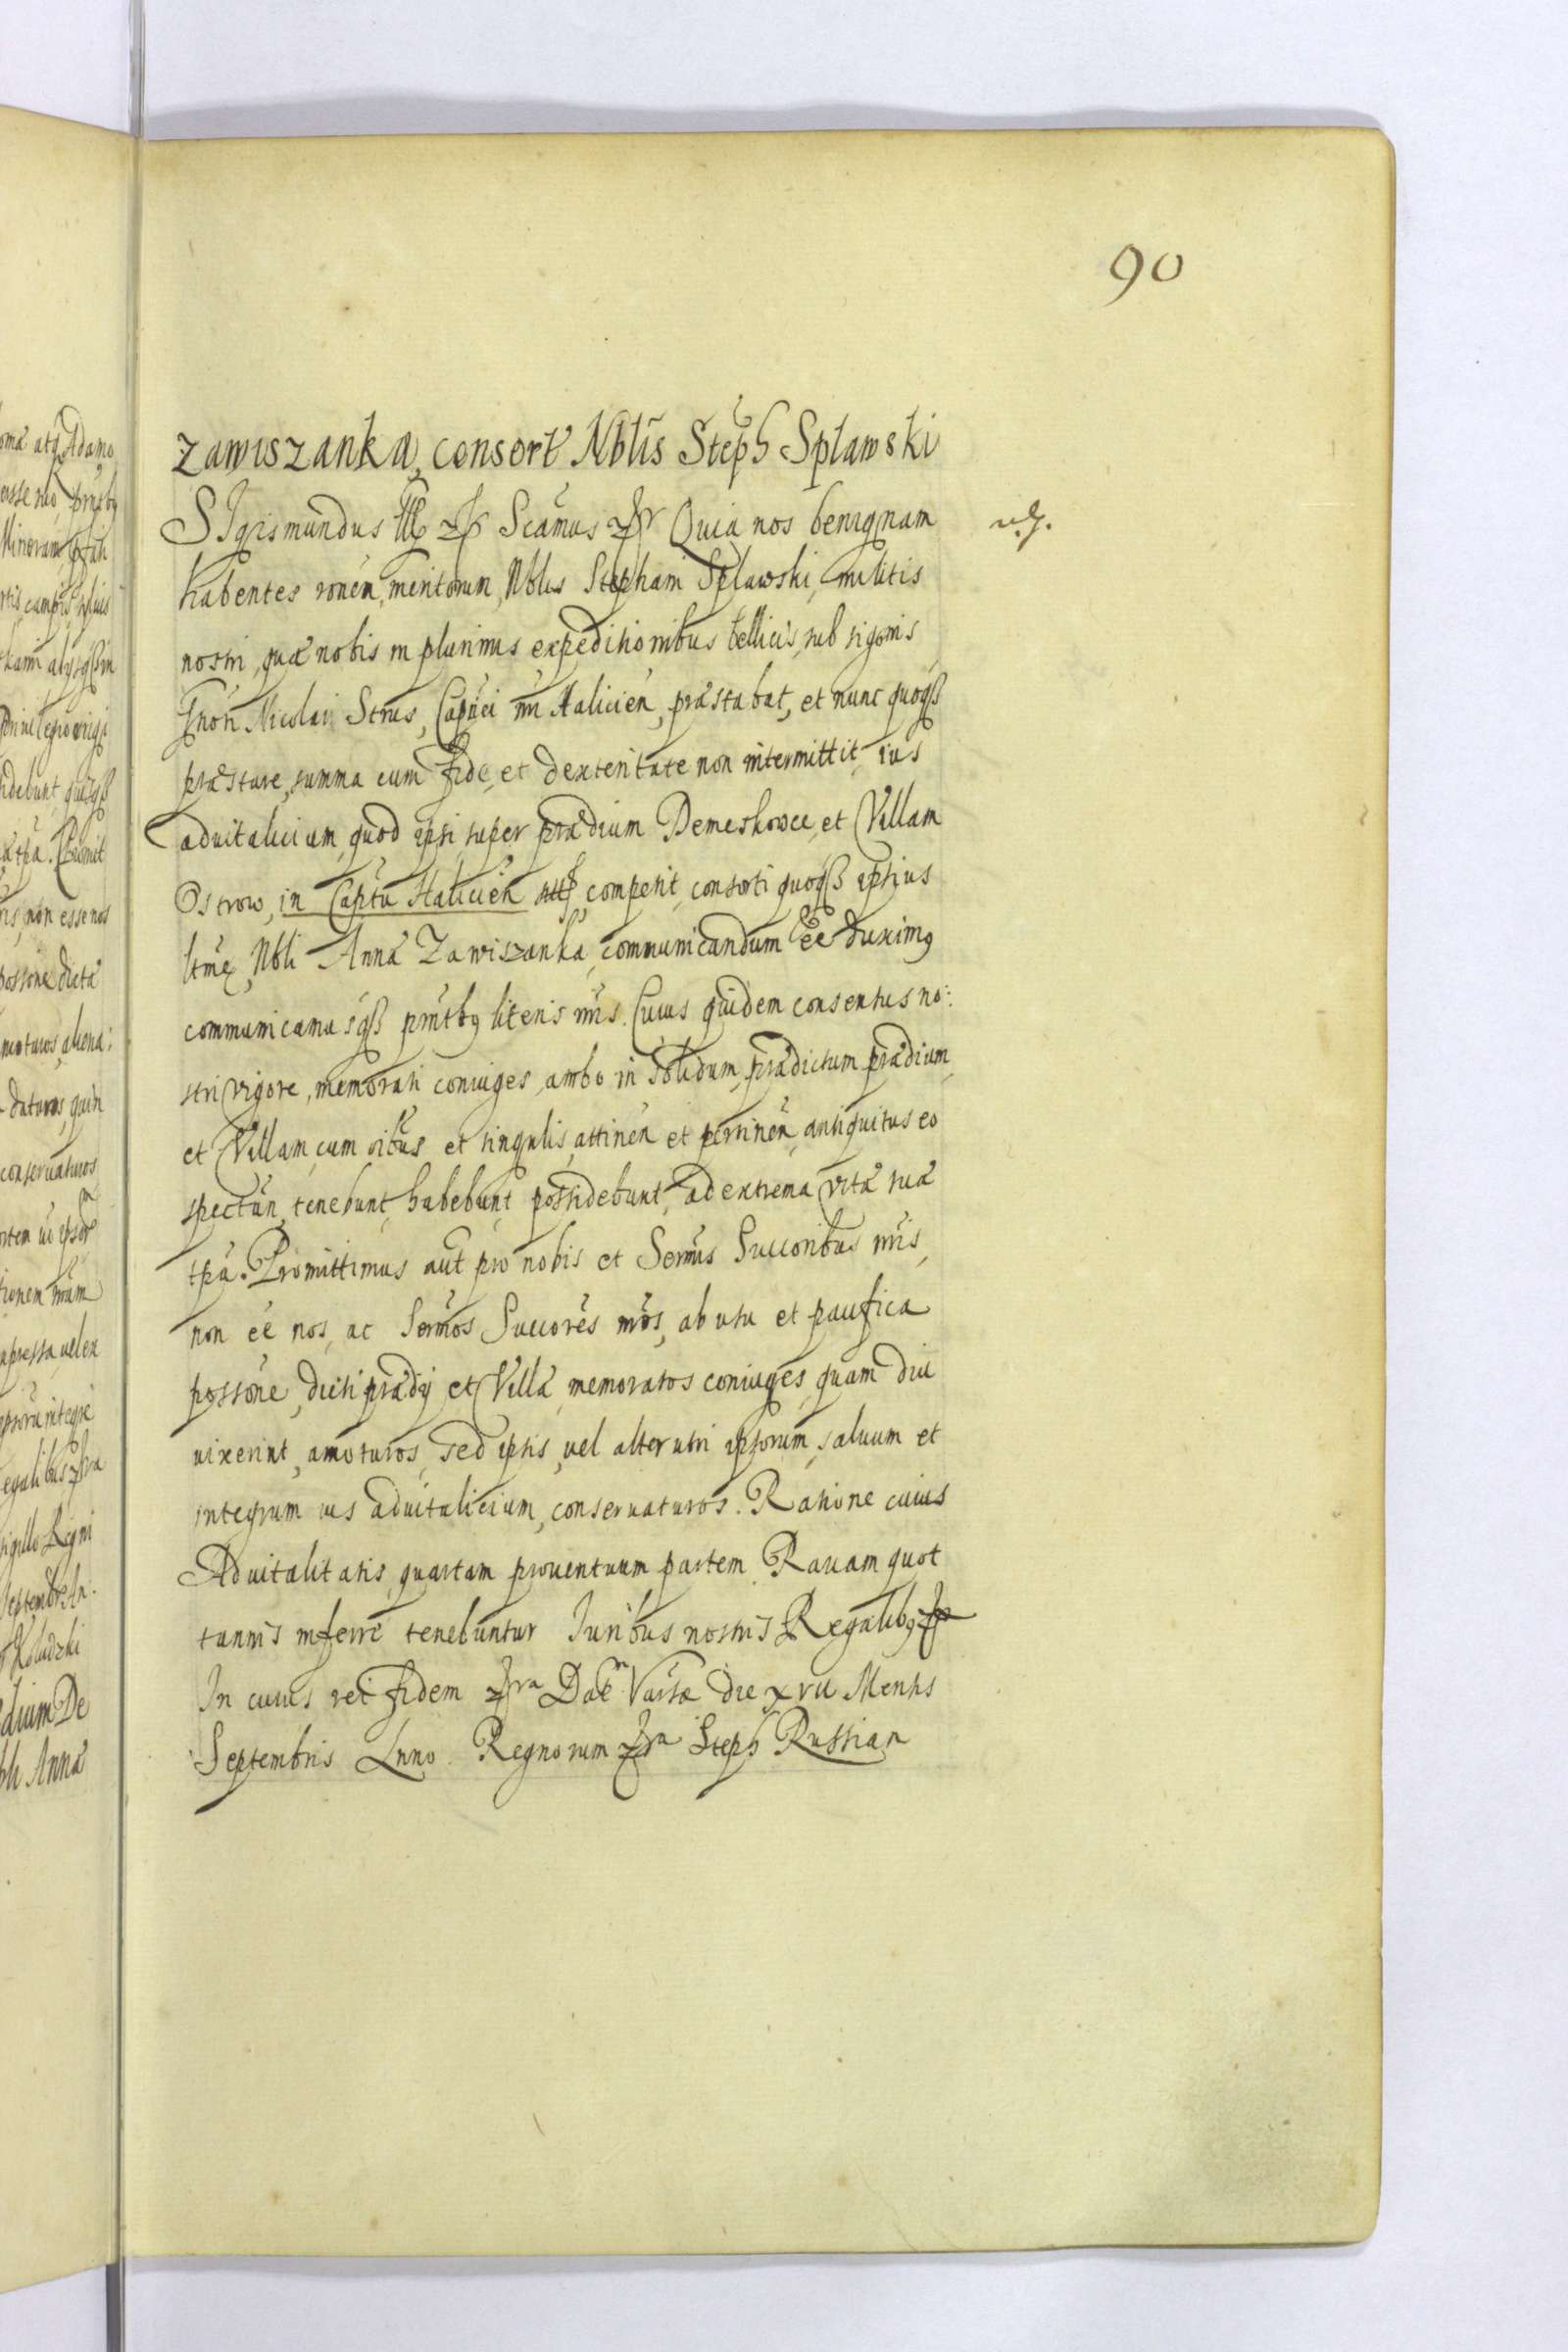 90
Zawiszanka, consort Nblis Steph Splawski
SIgismundus III etc Scamus etc Quia nos benignam
habentes ronen, meritorum, Nblis Stephani Splawski, militis
nostri, quæ nobis in plurimis expeditionibus bellicis, sub signis
Gnosi Nicolai Strus, Capnei nri Halicien, præstabat, et nunc quoqß
præstare, summa cum fide, et dexteritate non intermittit, ius
aduitalicium, quod ipsi, super prædium Demeskowce, et Villam
Ostrow, in Captu Halicien competit, consorti quoqß ipsius
ltmæ, Nbli Annæ Zawiszanka, communicandum ee duximq
communicamusqß pntbq literis nris. Cuius quidem consensus no:
stri vigore, memorati coniuges, ambo in solidum, prædictum prædium
et Villam, cum oibus et singulis, attinen et pertinen, antiquitus eo
spectan, tenebunt, habebunt, possidebunt, ad extrema vitæ suæ
tpa. Promittimus aut pro nobis et Sermis Succoribus nris,
non ee nos, ac Sermos Succores nros, ab usu et paucifica
possone, dicti prædij et Villæ, memoratos coniuges, quam diu
uixerint, amoturos, sed ipsis, uel alterutri ipsorum, saluum et
integrum ius aduitalicium, conseruaturos. Ratione cuius
Aduitalitatis, quartam prouentuum partem Rauam quot
tannis inferre tenebuntur Iuribus nostris Regalibq
In cuius rei fidem Dat Varsæ die xvii Mensis
Septembris Anno Regnorum Steph Russian